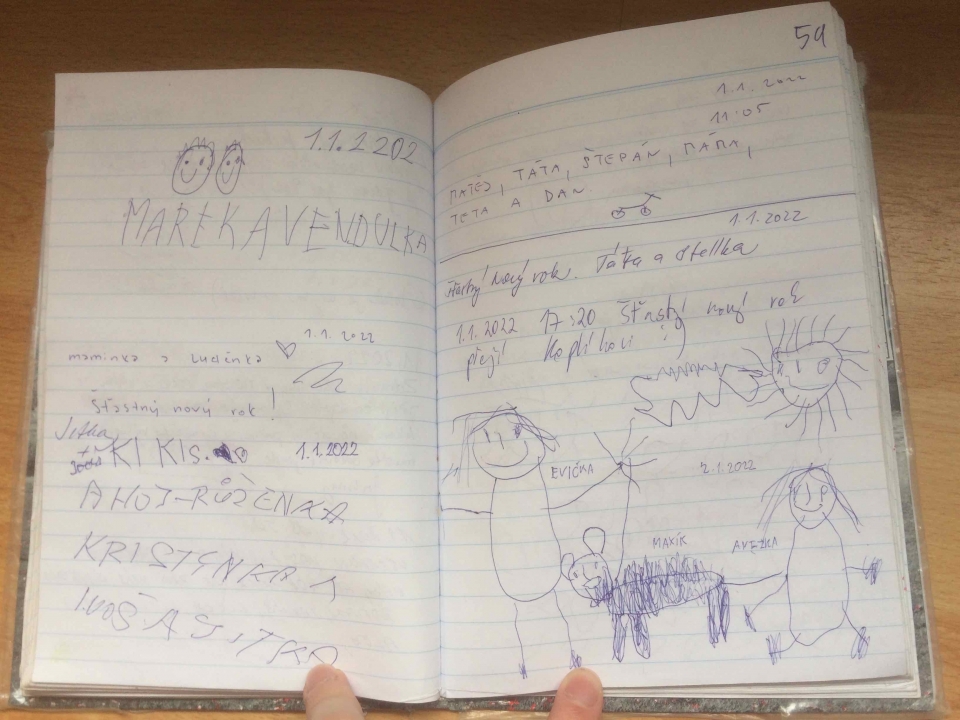 1.1.2202
MAREK A VENDULKA
1.1.2022
maminka a Lucinka
Šťastný nový rok!
Jitka
KIKIS. 1.1.2022
AHOJ-RŮŽENKA
KRISTÝNKA,
LUOŠ A JITKA
59
1.1.2022
11:05
MATĚJ, TÁTA, ŠTEPÁN, MÁMA,
TETA A DAN
1.1.2022
Šťastný nový rok. Táťa a Stellka
1.1.2022 17:20 Šťastný nový rok
přejí Koplíkovi :)
EVIČKA
2.1.2022
MAXÍK
ANEŽKA